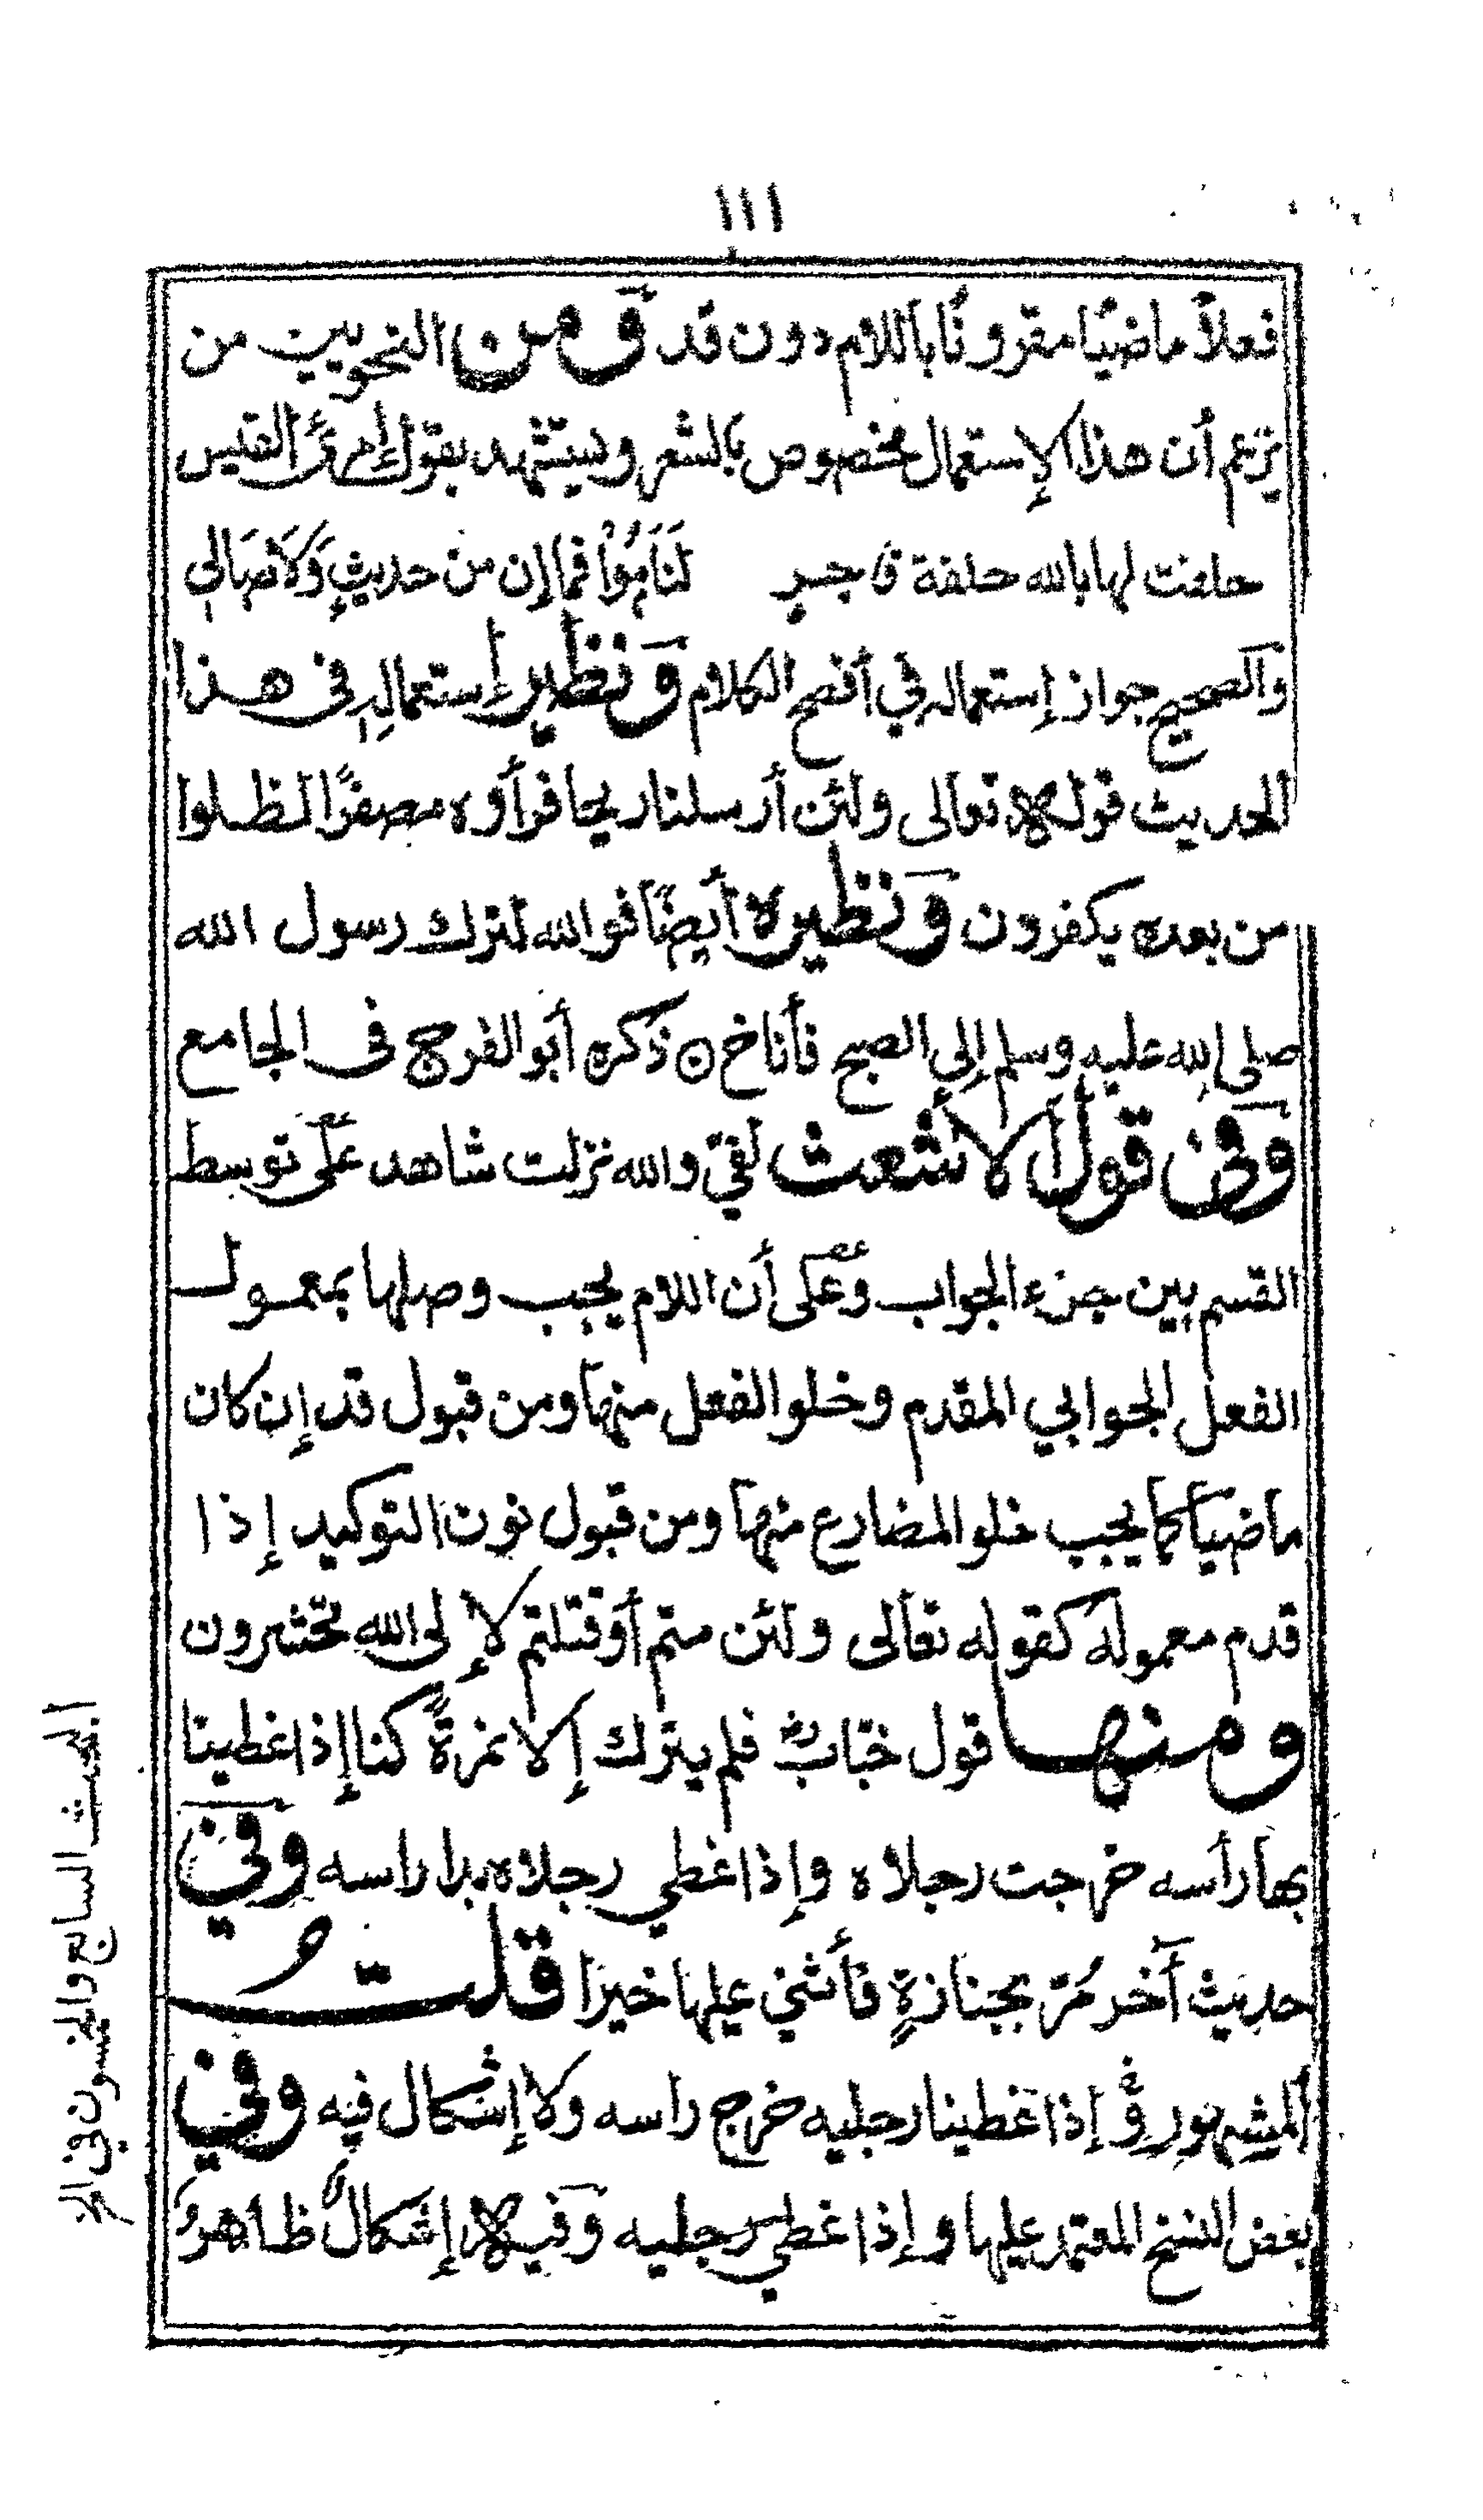 ١١١
فعلاً ماضيًا مقرونًا باللام دون قد وَمن النحويين من
يزعم أن هذا الإستعمال مخصوص بالشعر ويستشهد بقول إمرئ القيس
حلفت لها بالله حلفة فاجر لَنَامُوا فما إن من حديثٍ وَلَا صَالي
والصحيح جواز إستعماله في أفصح الكلام وَنظير إستعماله في هذا
الحديث قوله تعالى ولئن أرسلنا ريحا فرأوه مصفرًا لظلوا
من بعده يكفرون وَنظيره أيضًا فوالله لنزل رسول الله
صلى الله عليه وسلم إلى الصبح فأناخ ذكره أبو الفرج في الجامع
وَفي قول الأشعث لفيّ والله نزلت شاهد على توسط
القسم بين جزء الجواب وعلى أن اللام يجب وصلها بمعمول
الفعل الجوابي المقدم وخلو الفعل منها ومن قبول قد إن كان
ماضيا كما يجب خلو المضارع منها ومن قبول نون التوكيد إذا
قدم معموله كقوله تعالى ولئن متم أو قتلتم لإلى الله تحشرون
ومنها قول خبّاب رض فلم يترك إلا نمرةً كنا إذا غطينا
بها رأسه خرجت رجلاه وإذا غطي رجلاه بدا راسه وفي
حديث آخر مُرّ بجنازةٍ فأثني عليها خيرًا قلت
المشهور في إذا غطينا رجليه خرج راسه ولا إشكال فيه وفي
بعض النسخ المعتمد عليها وإذا غطي رجليه وَفيه إشكالٌ ظاهرٌ
البحث السابع والخمسون في الخ